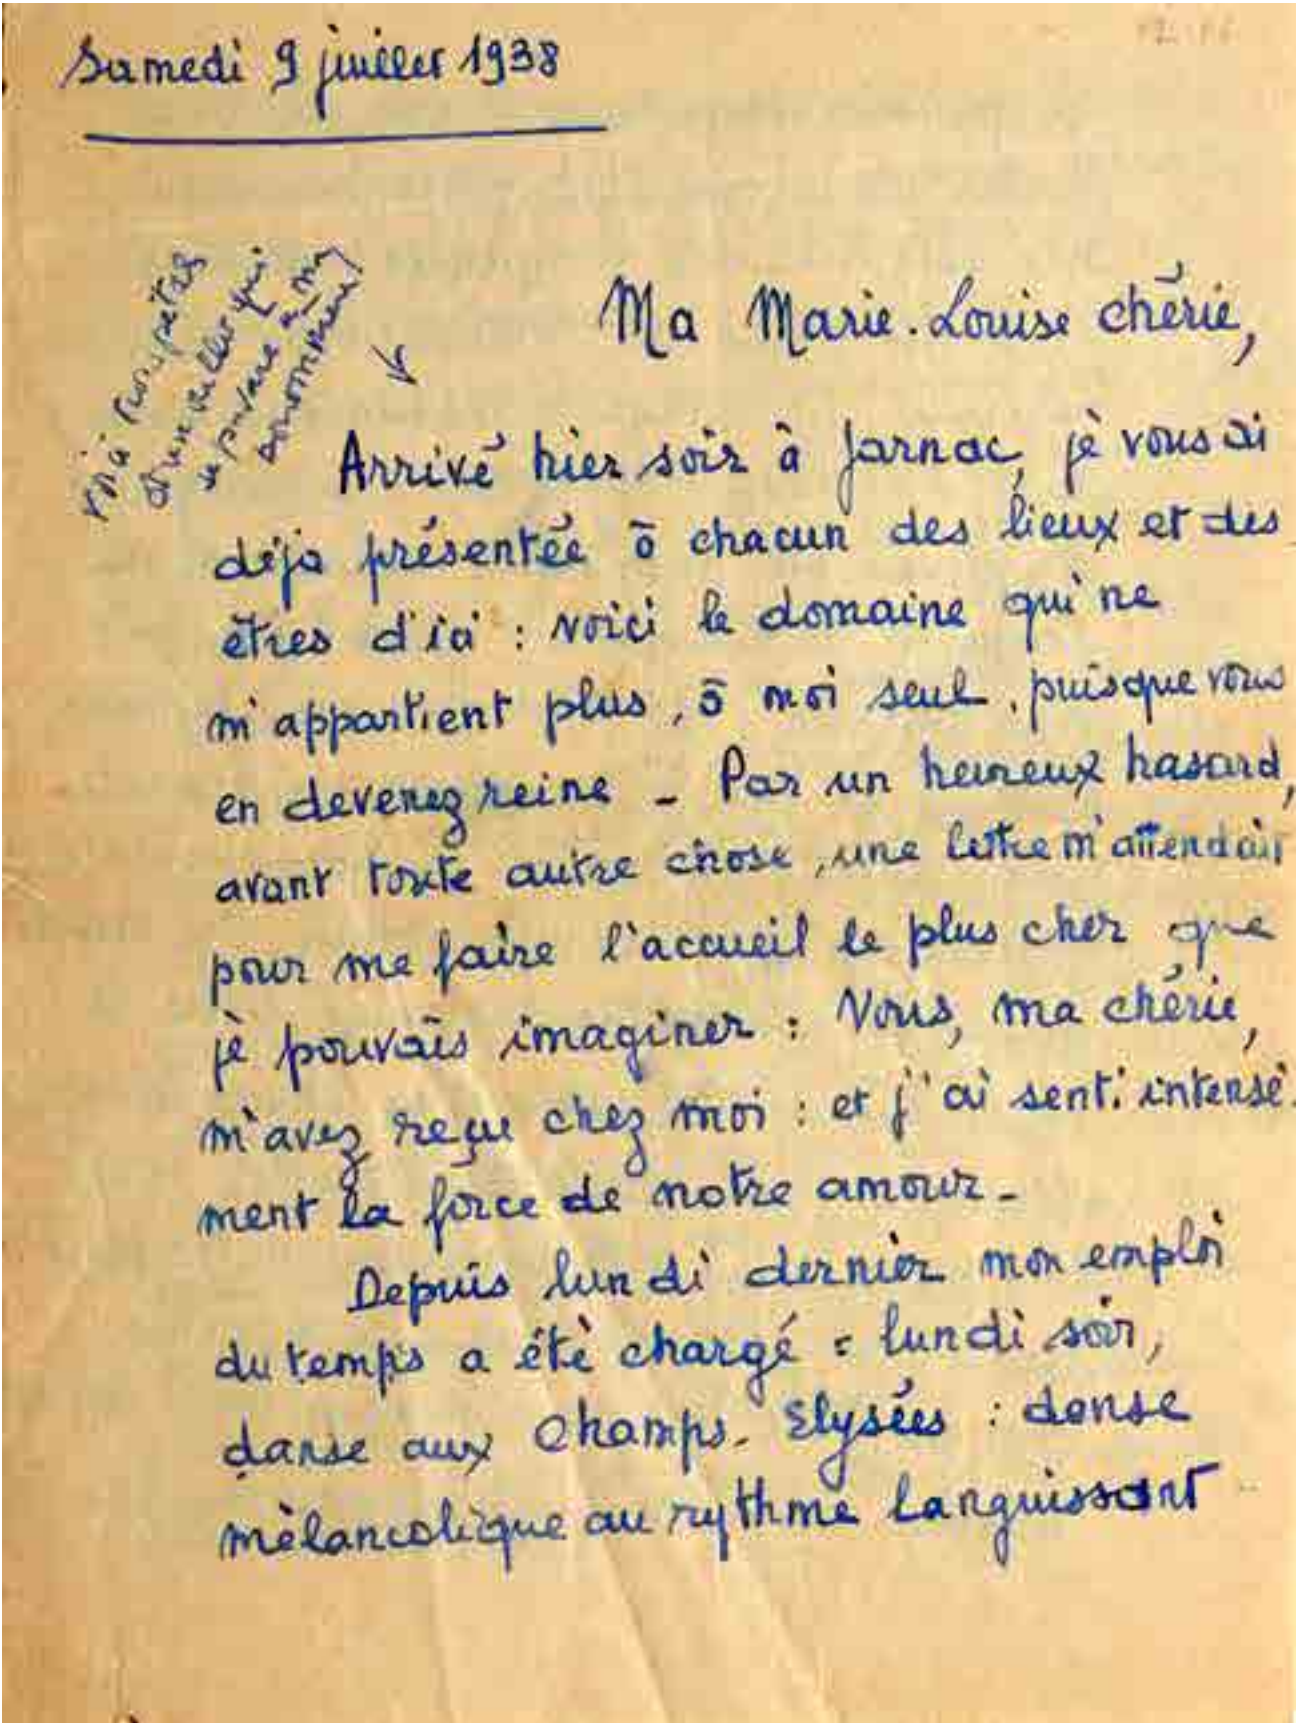 Samedi 9 juillet 1938
Voilà trois pétales
d'un œillet qui
se pavane à ma
boutonnière
Ma Marie-Louise chérie,
Arrivé hier soir à Jarnac, je vous ai
déjà présentée à chacun des lieux et des
êtres d'ici : voici le domaine qui ne
m'appartient plus, à moi seul, puisque vous
en devenez reine - Par un heureux hasard,
avant toute autre chose, une lettre m'attendait
pour me faire l'accueil le plus cher que
je pouvais imaginer : Vous, ma chérie,
m'avez reçu chez moi : et j'ai senti intensé-
ment la force de notre amour -
Depuis lundi dernier mon emploi
du temps a été chargé : lundi soir,
danse aux Champs-Elysées : danse
mélancolique au rythme languissant